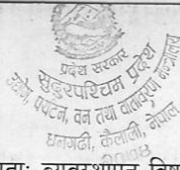 प्रदेश सरकार
सुदूरपश्चिम प्रदेश
उद्योग, पर्यटन, वन तथा वातावरण मन्त्रालय
धनगढी, कैलाली, नेपाल
व्यवस्थापन